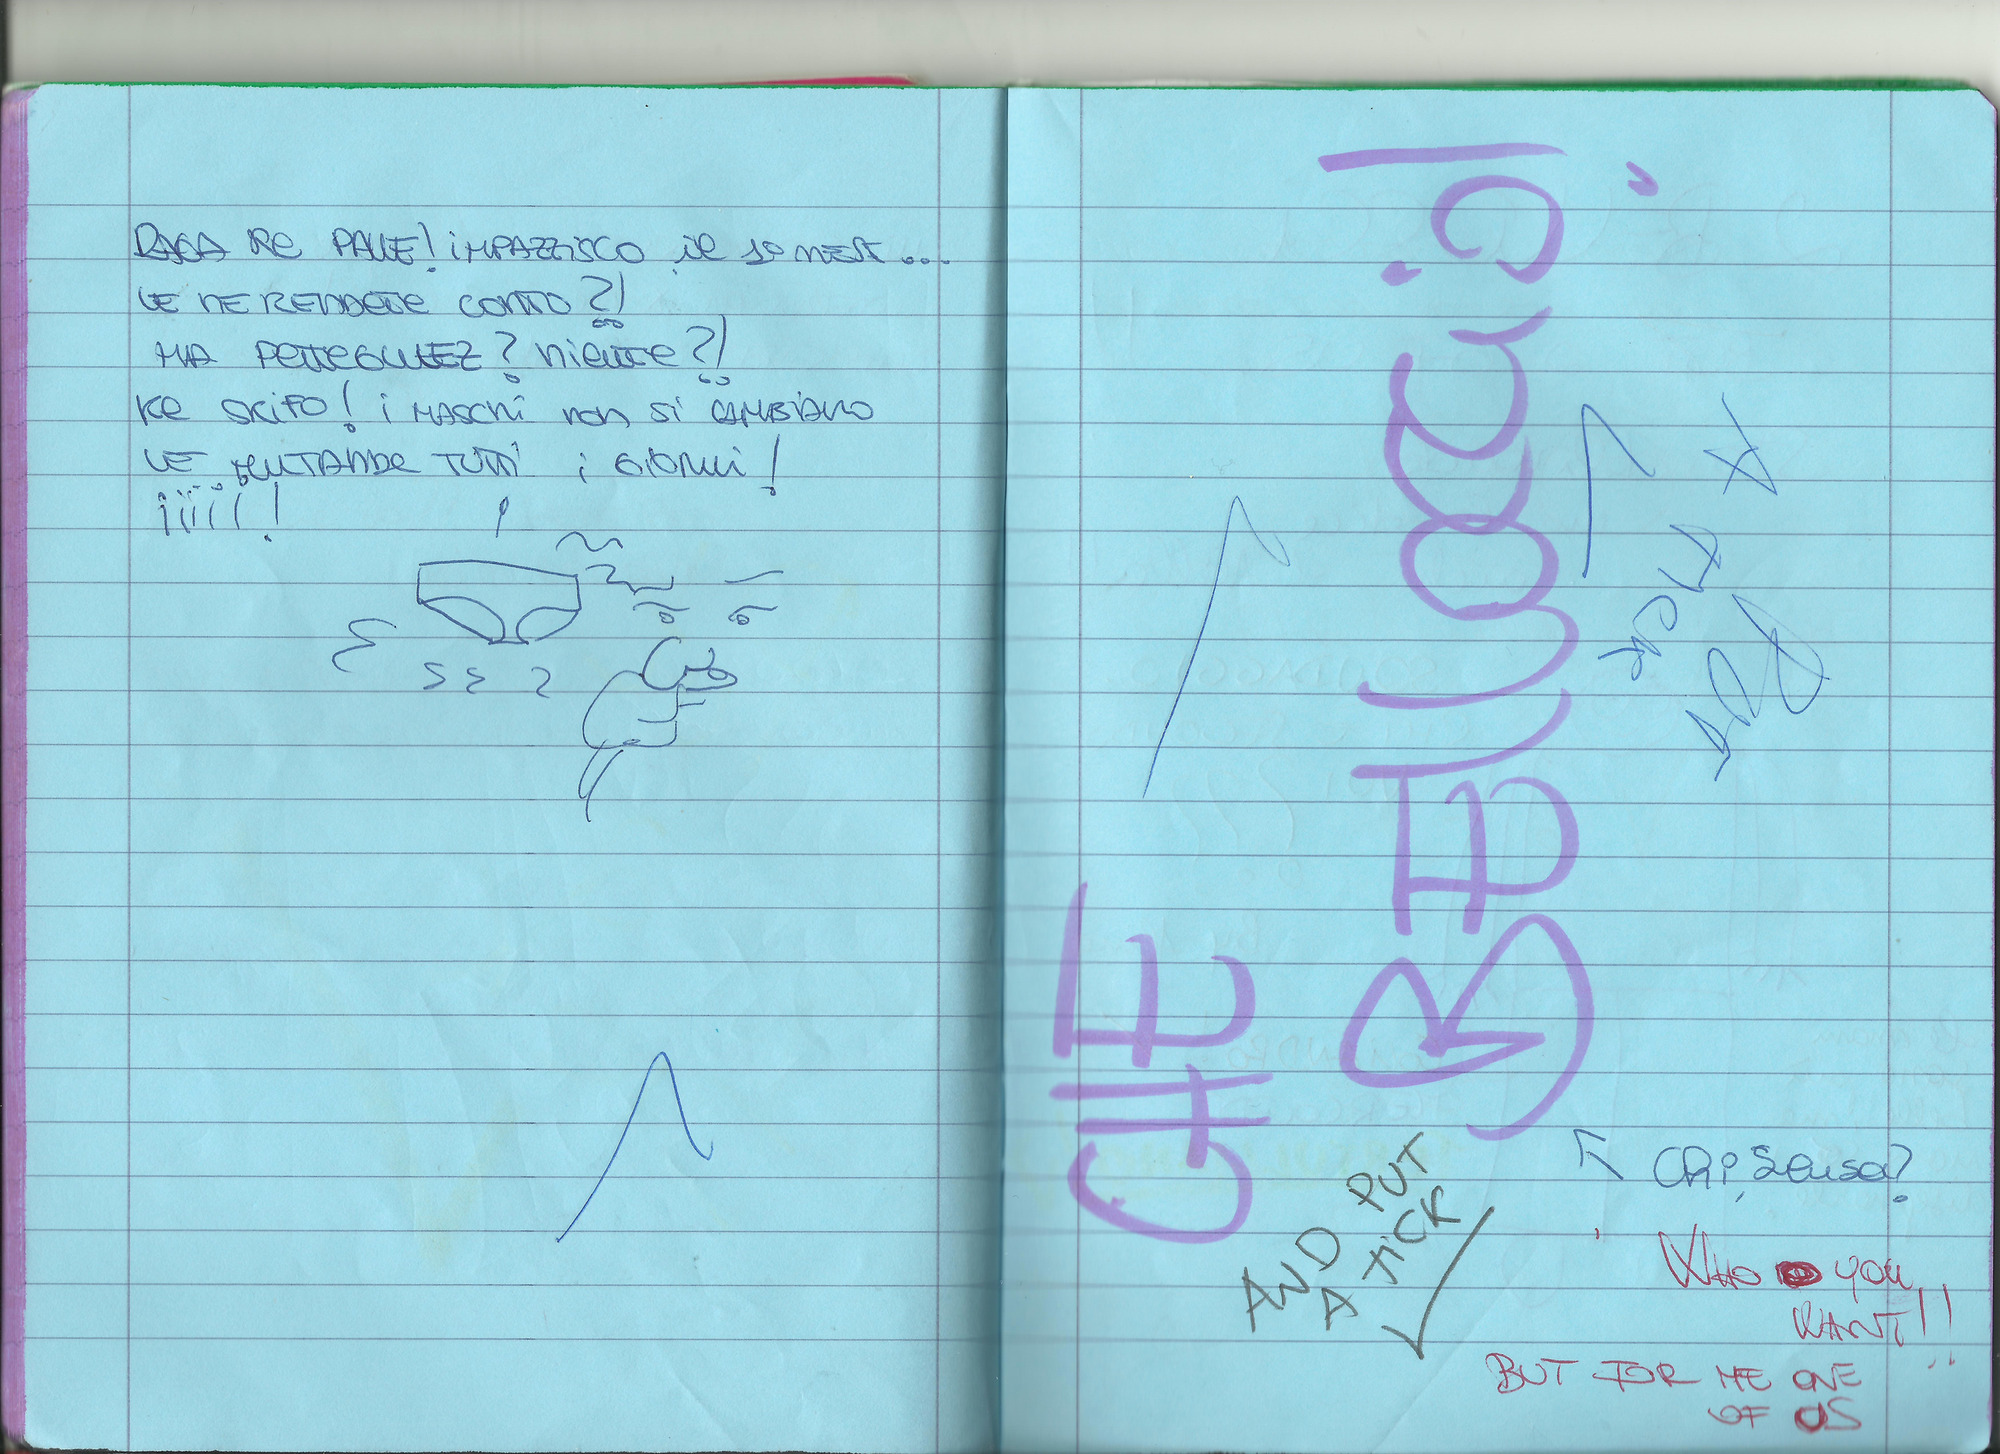 RAGA KE PALLE! IMPAZZISCO il 10 MEST ...
VE NE RENDETE CONTO?!
MA PETTEGULEZ? NIENTE?!
KE SKIFO! i MASCHI non Si CAMBIANO
LE MUTANDE TUTTI i GIORNI!
iiiii!
CHE
BELLOCCIO!
A TICK
PUT
AND PUT
A TiCK
Chi, Scusa?
WHO YOU
WANT!!
BUT FOR ME ONE
OF US